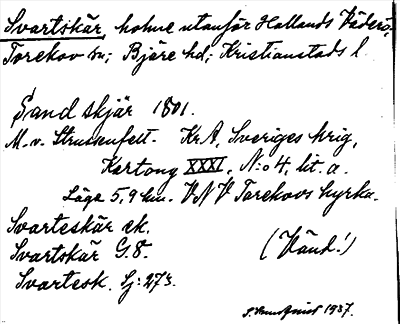 Svartskär, holme utanför Hallands Väderö,
Torekov sn; Bjäre hd; Kristianstads l.
Sand skjär 1801.
M. v. Strussenfelt. Kr A, Sveriges krig,
Kartong XXXI, N:o 4, lit. a.
Läge 5,9 km. VNV Torekovs kyrka.
Svarteskär ek.
Svartskär G.8.
(Vänd!)
Svartesk. Sj: 273.
1937.